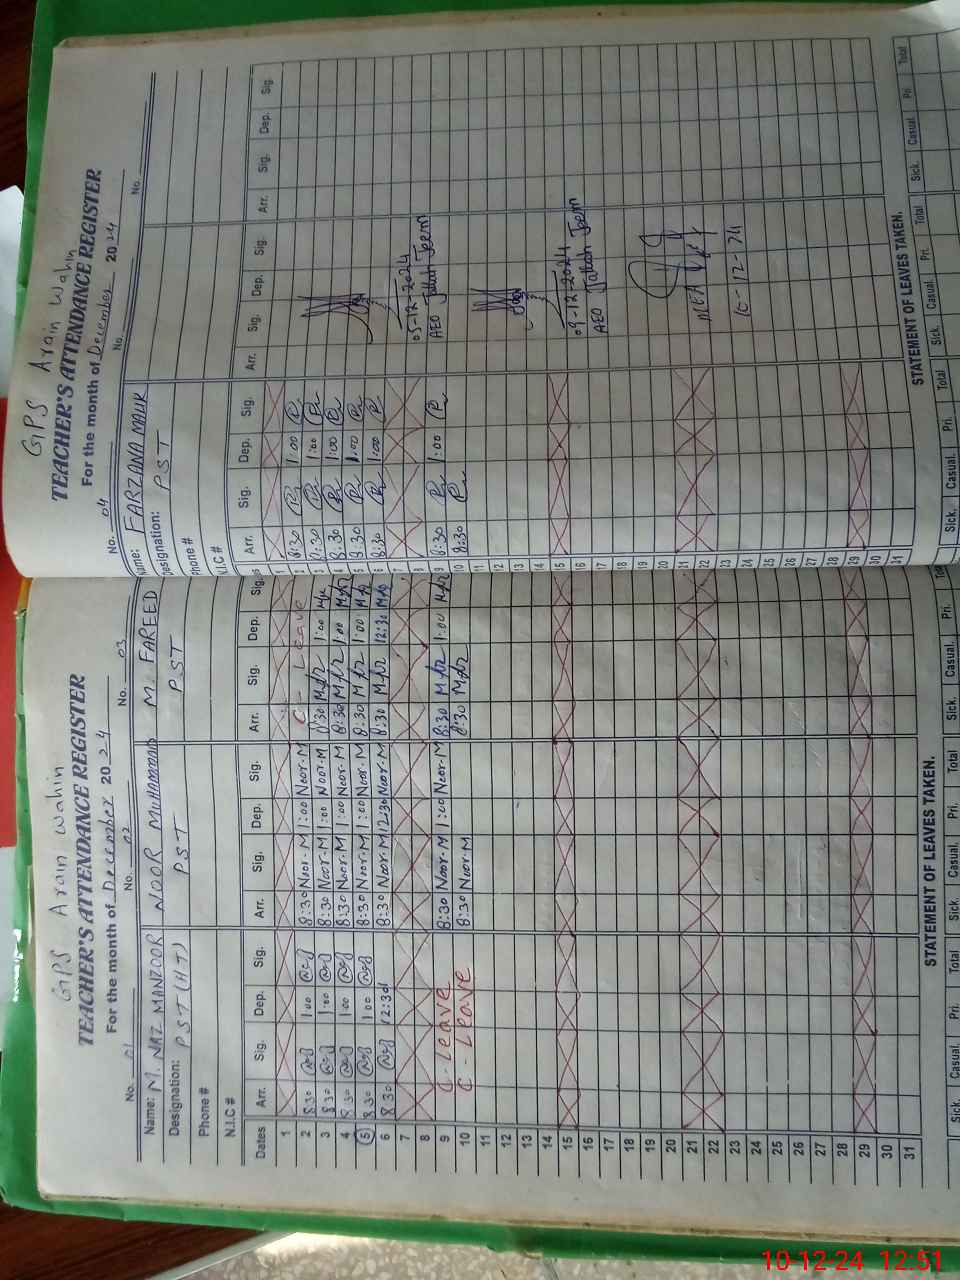 GPS Arain Wahin
TEACHER'S ATTENDANCE REGISTER
For the month of December 2024
No. 01 No. 02 No. 03
Name: M. NAZ MANZOOR NOOR MUHAMMAD M. FAREED
Designation: PST (HT) PST PST
Phone #
N.I.C #
Dates Arr. Sig. Dep. Sig. Arr. Sig. Dep. Sig. Arr. Sig. Dep. Sig.
1
2 8:30 1:00 8:30 Noor-M 1:00 Noor-M C - Leave
3 8:30 1:00 8:30 Noor-M 1:00 Noor-M 8:30 1:00
4 8:30 1:00 8:30 Noor-M 1:00 Noor-M 8:30 1:00
5 8:30 1:00 8:30 Noor-M 1:00 Noor-M 8:30 1:00
6 8:30 12:30 8:30 Noor-M 12:30 Noor-M 8:30 12:30
7
8
9 C - Leave 8:30 Noor-M 1:00 Noor-M 8:30 1:00
10 C - Leave 8:30 Noor-M 8:30
11
12
13
14
15
16
17
18
19
20
21
22
23
24
25
26
27
28
29
30
31
STATEMENT OF LEAVES TAKEN.
Sick. Casual. Pri. Total Sick. Casual. Pri. Total Sick. Casual. Pri.
GPS Arain Wahin
TEACHER'S ATTENDANCE REGISTER
For the month of December 2024
No. 04 No. No.
Name: FARZANA MALIK
Designation: PST
Phone #
N.I.C #
Arr. Sig. Dep. Sig. Arr. Sig. Dep. Sig. Arr. Sig. Dep. Sig.
1
2 8:30 1:00
3 8:30 1:00
4 8:30 1:00
5 8:30 1:00
6 8:30 1:00
7
8
9 8:30 1:00
10 8:30
11
12
13
14
15
16
17
18
19
20
21
22
23
24
25
26
27
28
29
30
31
05-12-2024
AEO Jallah Jeem
09-12-2024
AEO Jallah Jeem
MEA
10-12-24
STATEMENT OF LEAVES TAKEN.
Sick. Casual. Pri. Total Sick. Casual. Pri. Total Sick. Casual. Pri. Total
10-12-24 12:51